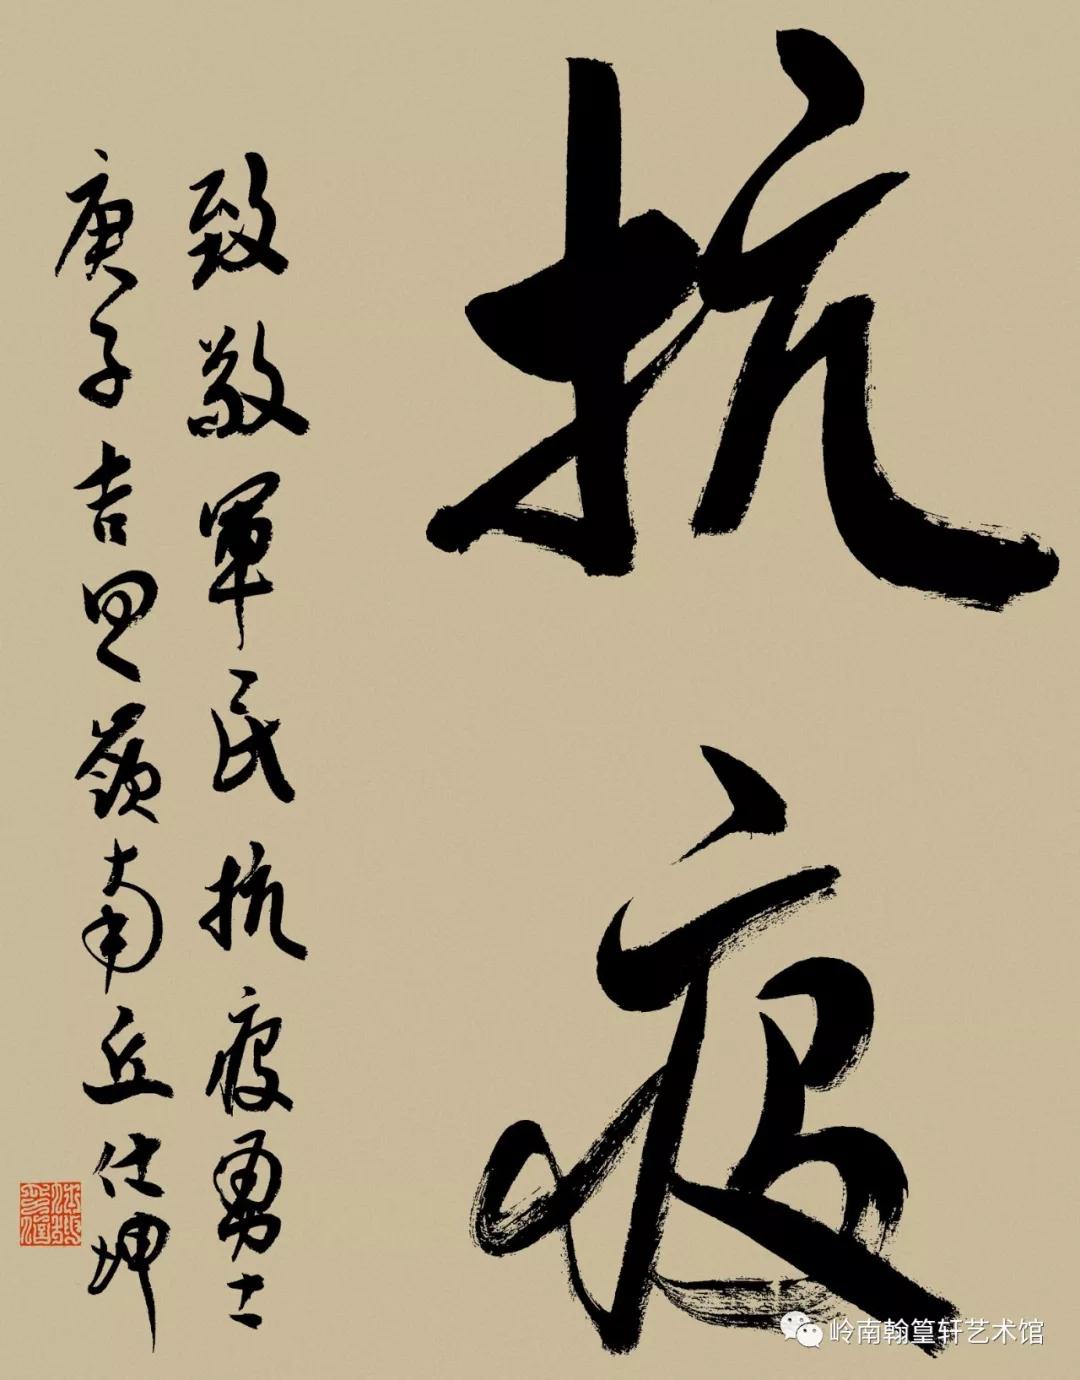 抗疫
致敬軍民抗疫勇士
庚子吉旦嶺南丘仕坤
岭南翰篁轩艺术馆